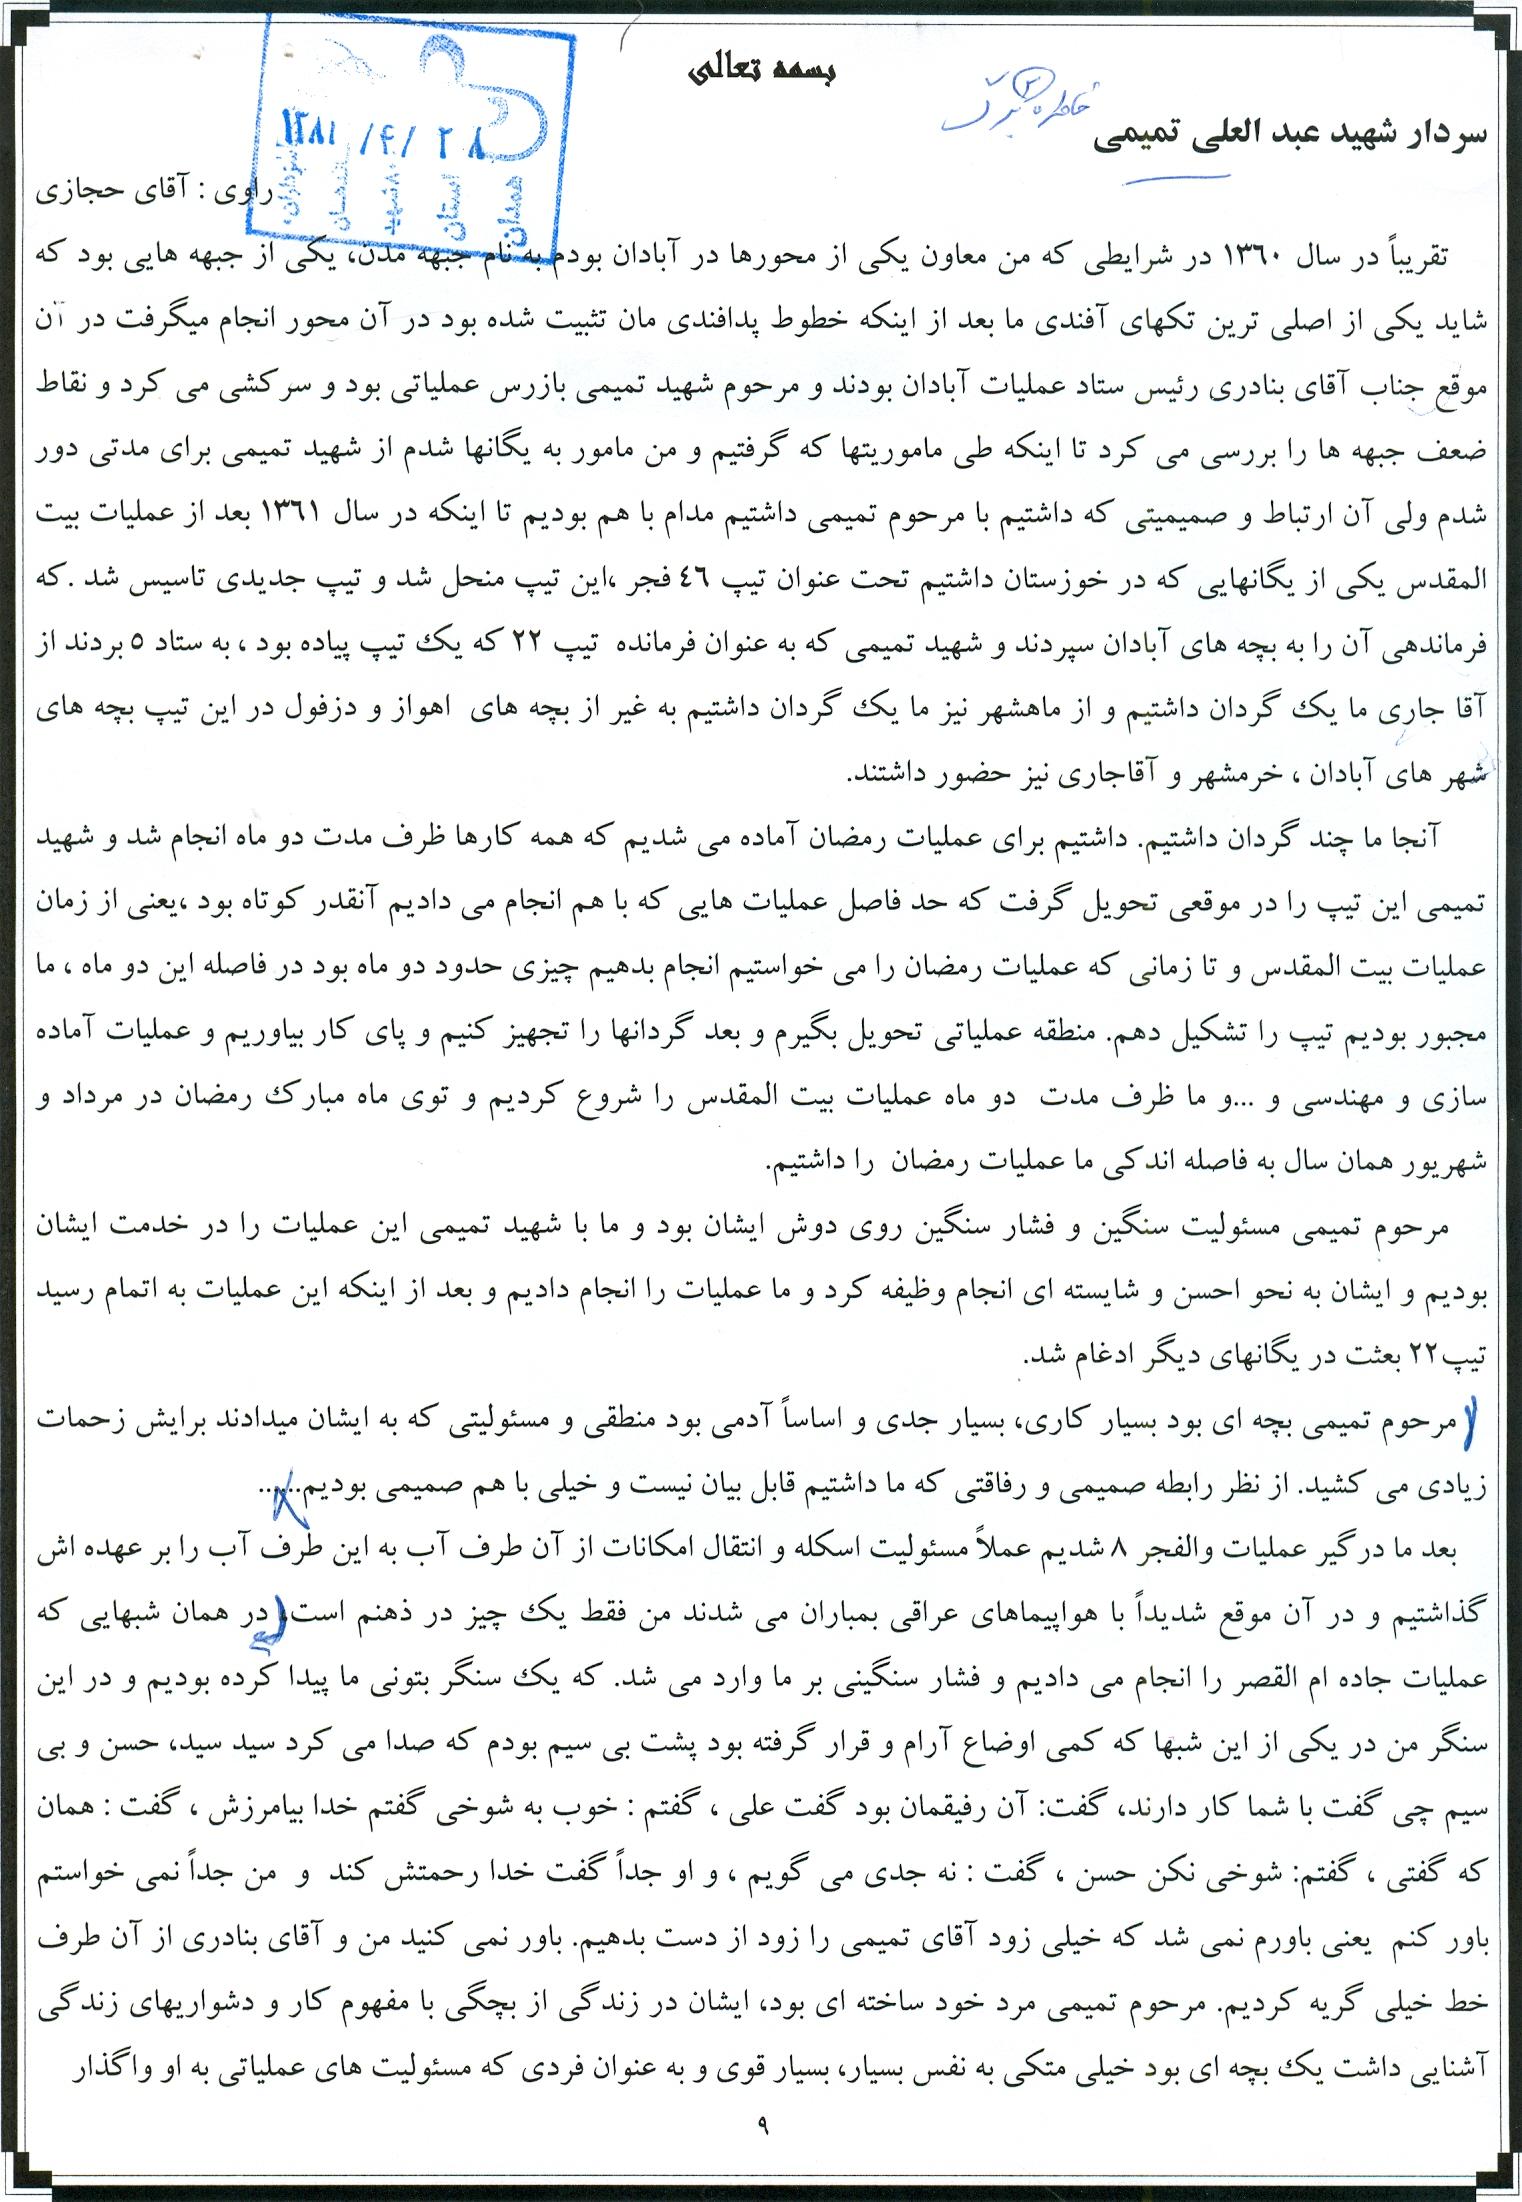 بسمه تعالی
خاطره ۲
سردار شهید عبد العلی تمیمی
۱۳۸۱/۴/۲۸
همدان
استان
راوی : آقای حجازی
تقریباً در سال ۱۳٦۰ در شرایطی که من معاون یکی از محورها در آبادان بودم به نام جبهه مدن، یکی از جبهه هایی بود که
شاید یکی از اصلی ترین تکهای آفندی ما بعد از اینکه خطوط پدافندی مان تثبیت شده بود در آن محور انجام میگرفت در آن
موقع جناب آقای بنادری رئیس ستاد عملیات آبادان بودند و مرحوم شهید تمیمی بازرس عملیاتی بود و سرکشی می کرد و نقاط
ضعف جبهه ها را بررسی می کرد تا اینکه طی ماموریتها که گرفتیم و من مامور به یگانها شدم از شهید تمیمی برای مدتی دور
شدم ولی آن ارتباط و صمیمیتی که داشتیم با مرحوم تمیمی داشتیم مدام با هم بودیم تا اینکه در سال ۱۳٦۱ بعد از عملیات بیت
المقدس یکی از یگانهایی که در خوزستان داشتیم تحت عنوان تیپ ٤٦ فجر ،این تیپ منحل شد و تیپ جدیدی تاسیس شد .که
فرماندهی آن را به بچه های آبادان سپردند و شهید تمیمی که به عنوان فرمانده تیپ ۲۲ که یک تیپ پیاده بود ، به ستاد ٥ بردند از
آقا جاری ما یک گردان داشتیم و از ماهشهر نیز ما یک گردان داشتیم به غیر از بچه های اهواز و دزفول در این تیپ بچه های
شهر های آبادان ، خرمشهر و آقاجاری نیز حضور داشتند.
آنجا ما چند گردان داشتیم. داشتیم برای عملیات رمضان آماده می شدیم که همه کارها ظرف مدت دو ماه انجام شد و شهید
تمیمی این تیپ را در موقعی تحویل گرفت که حد فاصل عملیات هایی که با هم انجام می دادیم آنقدر کوتاه بود ،یعنی از زمان
عملیات بیت المقدس و تا زمانی که عملیات رمضان را می خواستیم انجام بدهیم چیزی حدود دو ماه بود در فاصله این دو ماه ، ما
مجبور بودیم تیپ را تشکیل دهم. منطقه عملیاتی تحویل بگیرم و بعد گردانها را تجهیز کنیم و پای کار بیاوریم و عملیات آماده
سازی و مهندسی و ...و ما ظرف مدت دو ماه عملیات بیت المقدس را شروع کردیم و توی ماه مبارک رمضان در مرداد و
شهریور همان سال به فاصله اندکی ما عملیات رمضان را داشتیم.
مرحوم تمیمی مسئولیت سنگین و فشار سنگین روی دوش ایشان بود و ما با شهید تمیمی این عملیات را در خدمت ایشان
بودیم و ایشان به نحو احسن و شایسته ای انجام وظیفه کرد و ما عملیات را انجام دادیم و بعد از اینکه این عملیات به اتمام رسید
تیپ۲۲ بعثت در یگانهای دیگر ادغام شد.
مرحوم تمیمی بچه ای بود بسیار کاری، بسیار جدی و اساساً آدمی بود منطقی و مسئولیتی که به ایشان میدادند برایش زحمات
زیادی می کشید. از نظر رابطه صمیمی و رفاقتی که ما داشتیم قابل بیان نیست و خیلی با هم صمیمی بودیم......
بعد ما درگیر عملیات والفجر ۸ شدیم عملاً مسئولیت اسکله و انتقال امکانات از آن طرف آب به این طرف آب را بر عهده اش
گذاشتیم و در آن موقع شدیداً با هواپیماهای عراقی بمباران می شدند من فقط یک چیز در ذهنم است، در همان شبهایی که
عملیات جاده ام القصر را انجام می دادیم و فشار سنگینی بر ما وارد می شد. که یک سنگر بتونی ما پیدا کرده بودیم و در این
سنگر من در یکی از این شبها که کمی اوضاع آرام و قرار گرفته بود پشت بی سیم بودم که صدا می کرد سید سید، حسن و بی
سیم چی گفت با شما کار دارند، گفت: آن رفیقمان بود گفت علی ، گفتم : خوب به شوخی گفتم خدا بیامرزش ، گفت : همان
که گفتی ، گفتم: شوخی نکن حسن ، گفت : نه جدی می گویم ، و او جداً گفت خدا رحمتش کند و من جداً نمی خواستم
باور کنم یعنی باورم نمی شد که خیلی زود آقای تمیمی را زود از دست بدهیم. باور نمی کنید من و آقای بنادری از آن طرف
خط خیلی گریه کردیم. مرحوم تمیمی مرد خود ساخته ای بود، ایشان در زندگی از بچگی با مفهوم کار و دشواریهای زندگی
آشنایی داشت یک بچه ای بود خیلی متکی به نفس بسیار، بسیار قوی و به عنوان فردی که مسئولیت های عملیاتی به او واگذار
۹